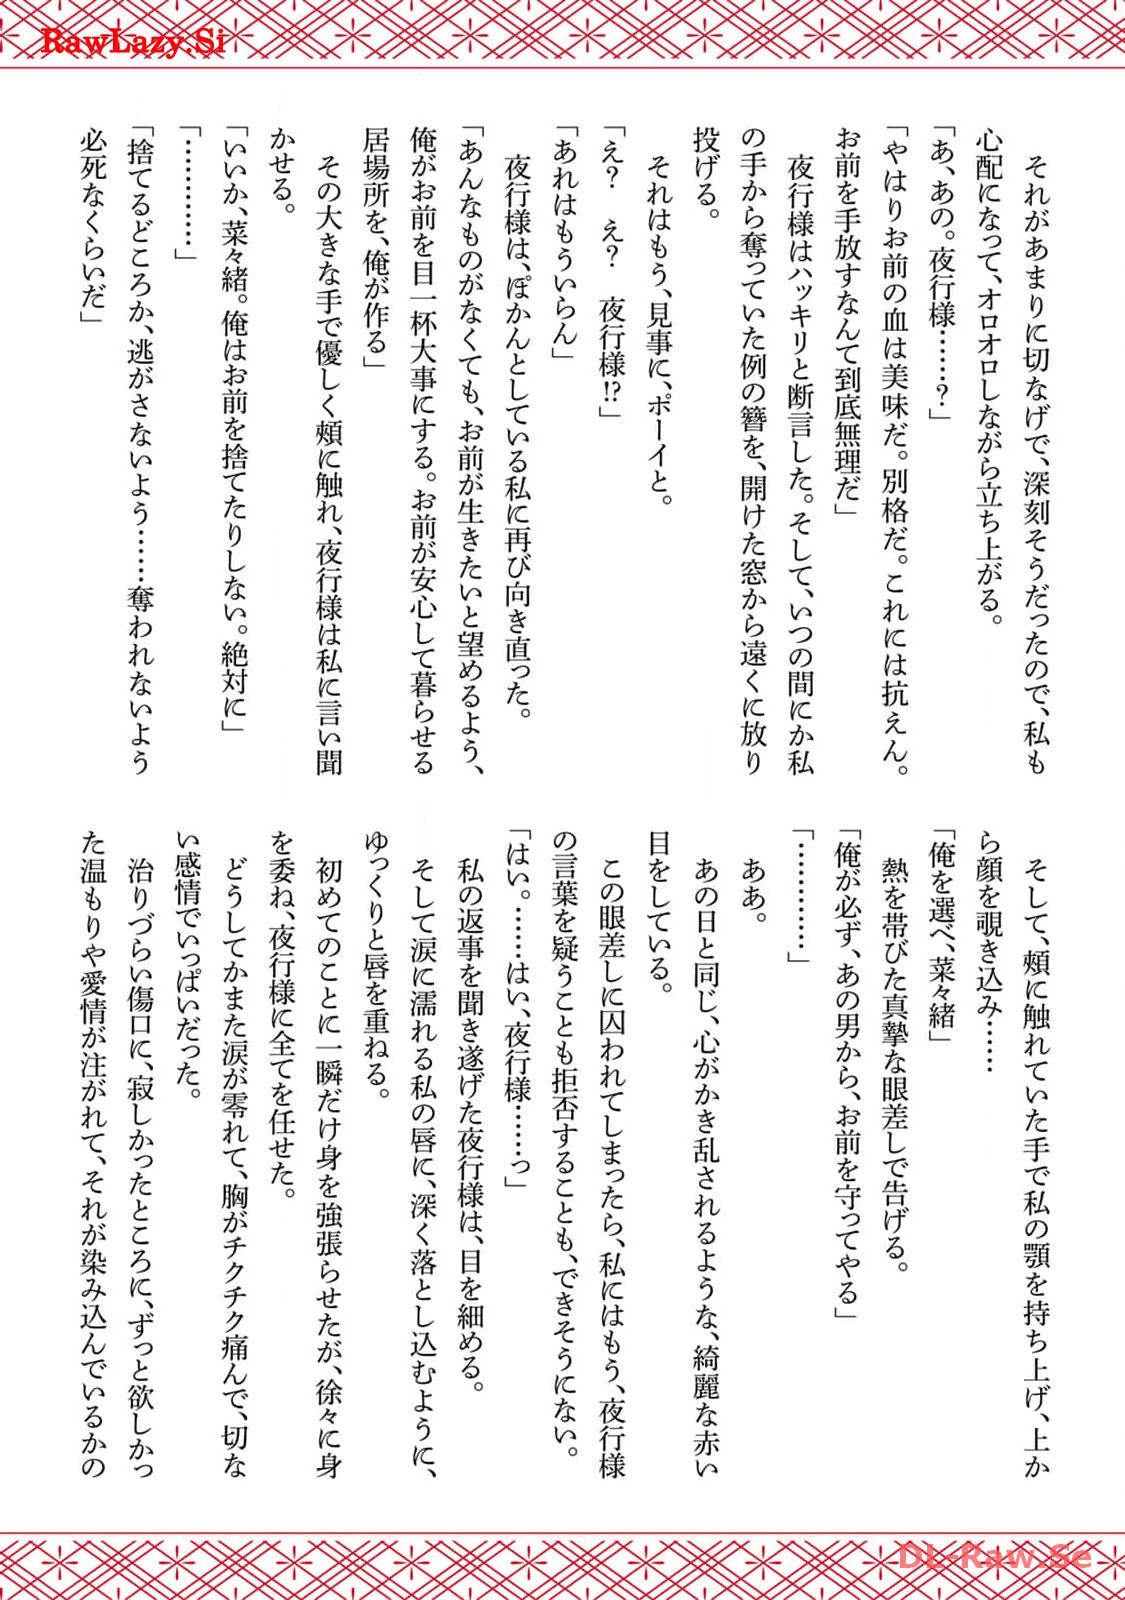 RawLazy.Si
　それがあまりに切なげで、深刻そうだったので、私も
心配になって、オロオロしながら立ち上がる。
「あ、あの。夜行様……？」
「やはりお前の血は美味だ。別格だ。これには抗えん。
お前を手放すなんて到底無理だ」
　夜行様はハッキリと断言した。そして、いつの間にか私
の手から奪っていた例の簪を、開けた窓から遠くに放り
投げる。
　それはもう、見事に、ポーイと。
「え？　え？　夜行様!?」
「あれはもういらん」
　夜行様は、ぽかんとしている私に再び向き直った。
「あんなものがなくても、お前が生きたいと望めるよう、
俺がお前を目一杯大事にする。お前が安心して暮らせる
居場所を、俺が作る」
　その大きな手で優しく頬に触れ、夜行様は私に言い聞
かせる。
「いいか、菜々緒。俺はお前を捨てたりしない。絶対に」
「…………」
「捨てるどころか、逃がさないよう……奪われないよう
必死なくらいだ」
　そして、頬に触れていた手で私の顎を持ち上げ、上か
ら顔を覗き込み……
「俺を選べ、菜々緒」
　熱を帯びた真摯な眼差しで告げる。
「俺が必ず、あの男から、お前を守ってやる」
「…………」
　ああ。
　あの日と同じ、心がかき乱されるような、綺麗な赤い
目をしている。
　この眼差しに囚われてしまったら、私にはもう、夜行様
の言葉を疑うことも拒否することも、できそうにない。
「はい。……はい、夜行様……っ」
　私の返事を聞き遂げた夜行様は、目を細める。
　そして涙に濡れる私の唇に、深く落とし込むように、
ゆっくりと唇を重ねる。
　初めてのことに一瞬だけ身を強張らせたが、徐々に身
を委ね、夜行様に全てを任せた。
　どうしてかまた涙が零れて、胸がチクチク痛んで、切な
い感情でいっぱいだった。
　治りづらい傷口に、寂しかったところに、ずっと欲しかっ
た温もりや愛情が注がれて、それが染み込んでいるかの
DL-Raw.Se